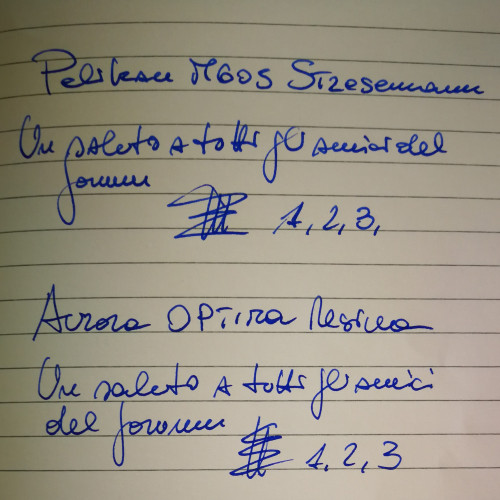 Pelikan M605 Stresemann
Un saluto a tutti gli amici del
forum
1, 2, 3,
Aurora OPTIMA Resina
Un saluto a tutti gli amici
del forum
1, 2, 3